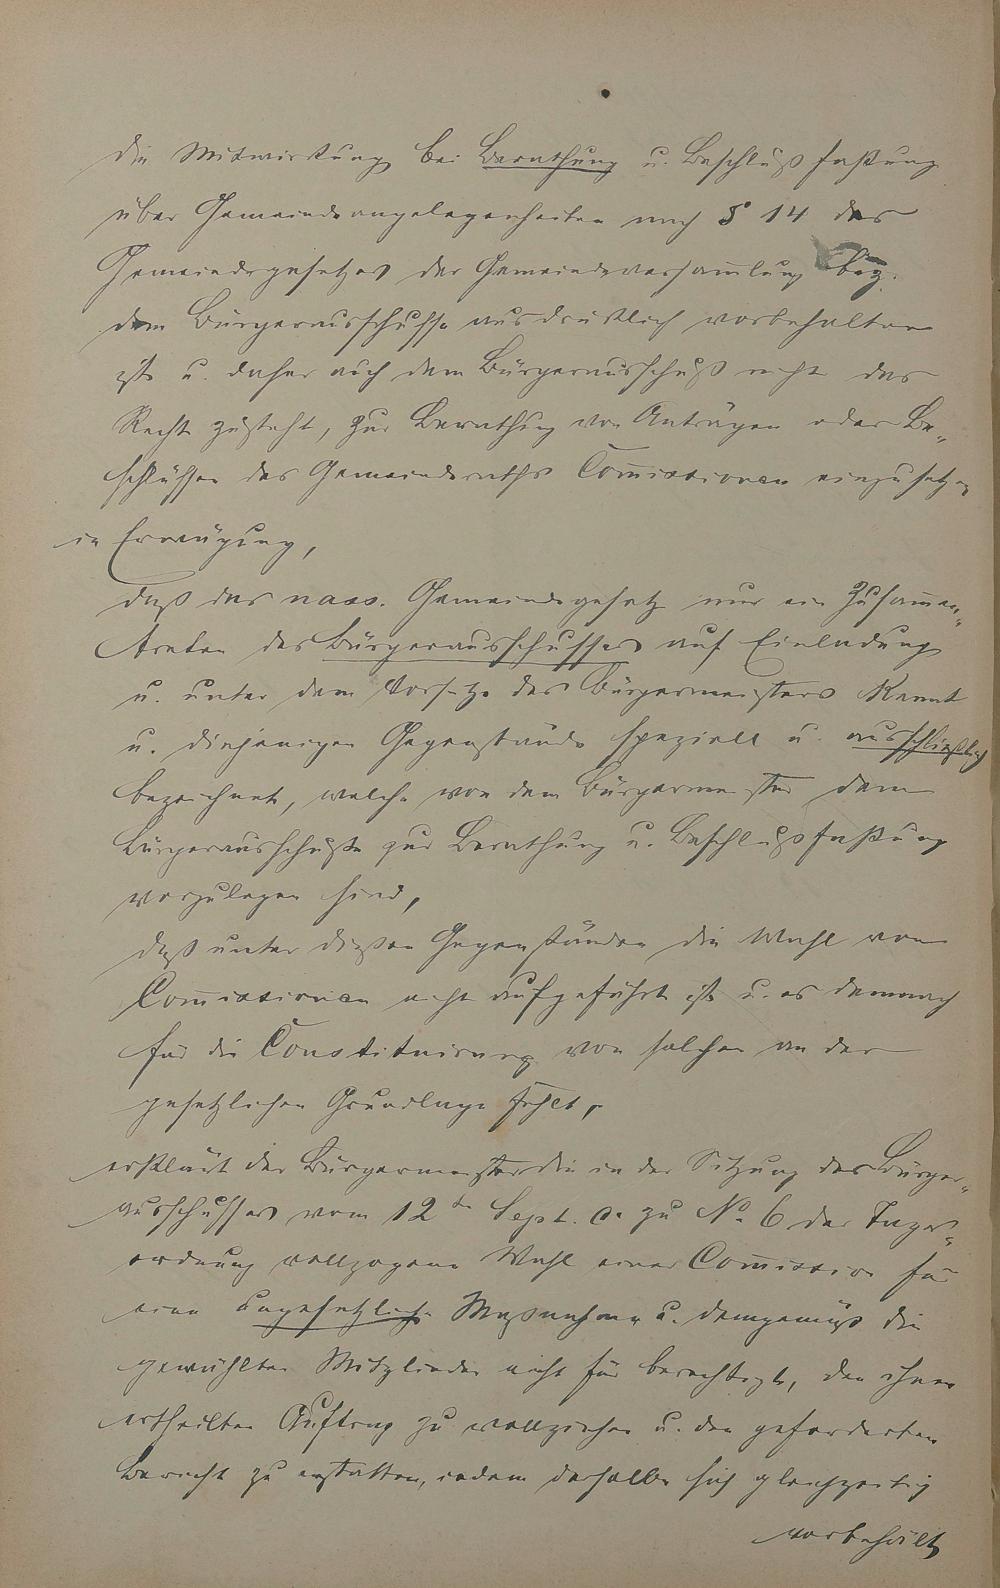 die Mitwirkung bei Berathung u. Beschlußfaßung
über Gemeindeangelegenheiten nach § 14 des
Gemeindegesetzes der Gemeindeversam̅lung bez.
dem Bürgerausschusse ausdrücklich vorbehalten
ist u. daher auch dem Bürgerausschuß nicht das
Recht zusteht, zur Berathung von Anträgen oder Be-
schlüssen des Gemeinderaths Com̅issionen einzusetzen
in Erwägung,
daß das nass. Gemeindegesetz nur ein Zusam̅en-
treten des Bürgerausschusses auf Einladung
u. unter dem Vorsitze des Bürgermeisters kennt
u. diejenigen Gegenstände speziell u. ausschließlich
bezeichnet, welche von dem Bürgermeister dem
Bürgerausschuße zur Berathung u. Beschlußfaßung
vorzulegen sind,
daß unter dießen Gegenständen die Wahl von
Com̅issionen nicht aufgeführt ist u. es demnach
für die Constituirung von solchen an der
gesetzlichen Grundlage fehlt,
erklärt der Bürgermeister die in der Sitzung des Bürger-
ausschusses vom 12ten Sept. c. zu No. 6 der Tages-
ordnung vollzogene Wahl einer Com̅ission für
eine ungesetzliche Maßnahme u. demgemäß die
gewählten Mitglieder nicht für berechtigt, den ihnen
ertheilten Auftrag zu vollziehen u. den geforderten
Bericht zu erstatten, indem derselbe sich gleichzeitig
vorbehält